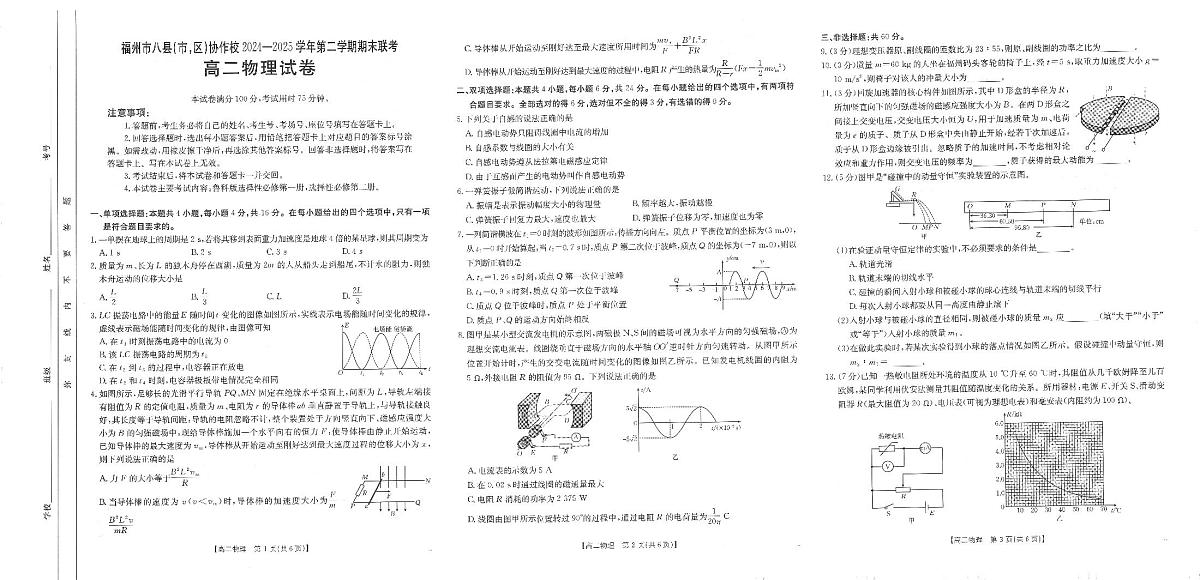 学校
班级
姓名
考号
密
封
线
内
不
要
答
题
福州市八县(市、区)协作校2024—2025学年第二学期期末联考
高二物理试卷
本试卷满分100分,考试用时75分钟。
注意事项:
1.答题前,考生务必将自己的姓名、考生号、考场号、座位号填写在答题卡上。
2.回答选择题时,选出每小题答案后,用铅笔把答题卡上对应题目的答案标号涂
黑。如需改动,用橡皮擦干净后,再选涂其他答案标号。回答非选择题时,将答案写在
答题卡上。写在本试卷上无效。
3.考试结束后,将本试卷和答题卡一并交回。
4.本试卷主要考试内容:鲁科版选择性必修第一册,选择性必修第二册。
一、单项选择题:本题共4小题,每小题4分,共16分。在每小题给出的四个选项中,只有一项
是符合题目要求的。
1.一单摆在地球上的周期是2 s,若将其移到表面重力加速度是地球4倍的某星球,则其周期变为
A.1 s B.2 s C.3 s D.4 s
2.质量为m、长为L的独木舟停在西湖,质量为2m的人从船头走到船尾,不计水的阻力,则独
木舟运动的位移大小是
A. L/2 B. L/3 C.L D. 2L/3
3.LC振荡电路中的能量E随时间t变化的图像如图所示,实线表示电场能随时间变化的规律,
虚线表示磁场能随时间变化的规律,由图像可知
A.在t₁时刻振荡电路中的电流为0
B.该LC振荡电路的周期为t₂
C.在t₂到t₃的过程中,电容器正在放电
D.在t₂和t₄时刻,电容器极板带电情况完全相同
电场能 磁场能
4.如图所示,足够长的光滑平行导轨PQ、MN固定在绝缘水平桌面上,间距为L,导轨左端接
有阻值为R的定值电阻,质量为m、电阻为r的导体棒ab垂直静置于导轨上,与导轨接触良
好,其长度等于导轨间距,导轨的电阻忽略不计,整个装置处于方向竖直向下、磁感应强度大
小为B的匀强磁场中,现给导体棒施加一个水平向右的恒力F,使导体棒由静止开始运动,
已知导体棒的最大速度为vₘ,导体棒从开始运动至刚好达到最大速度过程的位移大小为x,
则下列说法正确的是
A.力F的大小等于B²L²vₘ/R
B.当导体棒的速度为v(v<vₘ)时,导体棒的加速度大小为F/m−
B²L²v/mR
【高二物理 第1页(共6页)】
C.导体棒从开始运动至刚好达至最大速度所用时间为mvₘ/F+B²L²x/FR
D.导体棒从开始运动至刚好达到最大速度的过程中,电阻R产生的热量为R/(R−r)(Fx−1/2mvₘ²)
二、双项选择题:本题共4小题,每小题6分,共24分。在每小题给出的四个选项中,有两项符
合题目要求。全部选对的得6分,选对但不全的得3分,有选错的得0分。
5.下列关于自感的说法正确的是
A.自感电动势只阻碍线圈中电流的增加
B.自感系数与线圈的大小有关
C.自感电动势遵从法拉第电磁感应定律
D.由于互感而产生的电动势叫作自感电动势
6.一弹簧振子做简谐运动,下列说法正确的是
A.振幅是表示振动幅度大小的物理量 B.频率越大,振动越慢
C.弹簧振子回复力最大,速度也最大 D.弹簧振子位移为零,加速度也为零
7.一列简谐横波在t₁=0时刻的波形如图所示,传播方向向左。质点P平衡位置的坐标为(3 m,0),
从t₁=0时开始算起,当t₂=0.7 s时,质点P第二次位于波峰,质点Q的坐标为(−7 m,0),则以
下判断正确的是
A.t₃=1.26 s时刻,质点Q第一次位于波峰
B.t₄=0.9 s时刻,质点Q第一次位于波峰
C.质点Q位于波峰时,质点P处于平衡位置
D.质点P、Q的运动方向始终相反
8.图甲是某小型交流发电机的示意图,两磁极N、S间的磁场可视为水平方向的匀强磁场,Ⓐ为
理想交流电流表。线圈绕垂直于磁场方向的水平轴OO′逆时针方向匀速转动。从图甲所示
位置开始计时,产生的交变电流随时间变化的图像如图乙所示。已知发电机线圈的内阻为
5 Ω,外接电阻R的阻值为95 Ω。下列说法正确的是
甲
乙
A.电流表的示数为5 A
B.在0.02 s时通过线圈的磁通量最大
C.电阻R消耗的功率为2 375 W
D.线圈由图甲所示位置转过90°的过程中,通过电阻R的电荷量为1/20π C
【高二物理 第2页(共6页)】
三、非选择题:共60分。
9.(3分)理想变压器原、副线圈的匝数比为23∶55,则原、副线圈的功率之比为______。
10.(3分)质量m=60 kg的人坐在福州码头客轮的椅子上,经t=5 s,取重力加速度大小g=
10 m/s²,则椅子对该人的冲量大小为______。
11.(3分)回旋加速器的核心构件如图所示,其中D形盒的半径为R,
所加竖直向下的匀强磁场的磁感应强度大小为B。在两D形盒之
间接上交变电压,交变电压大小恒为U,用于加速质量为m、电荷
量为e的质子。质子从D形盒中央由静止开始,经若干次加速后,
质子从D形盒边缘被引出。忽略质子的加速时间,不考虑相对论
效应和重力作用,则交变电压的频率为______,质子获得的最大动能为______。
12.(5分)图甲是“碰撞中的动量守恒”实验装置的示意图。
甲
O M P N
36.30
60.50
单位:cm
乙
(1)在验证动量守恒定律的实验中,不必须要求的条件是______。
A.轨道光滑
B.轨道末端的切线水平
C.碰撞的瞬间入射小球和被碰小球的球心连线与轨道末端的切线平行
D.每次入射小球都要从同一高度由静止滚下
(2)入射小球与被碰小球的直径相同,则被碰小球的质量m₂应______(填“大于”“小于”
或“等于”)入射小球的质量m₁。
(3)在做此实验时,若某次实验得到小球的落点情况如图乙所示。假设碰撞中动量守恒,则
m₁∶m₂=______。
13.(7分)已知一热敏电阻所处环境的温度从10 ℃升至60 ℃时,其阻值从几千欧姆降至几百
欧姆,某同学利用伏安法测量其阻值随温度变化的关系。所用器材:电源E、开关S、滑动变
阻器R(最大阻值为20 Ω)、电压表(可视为理想电表)和毫安表(内阻约为100 Ω)。
热敏电阻
甲
R/kΩ
6.0
5.0
4.0
3.0
2.0
1.0
0 10 20 30 40 50 60 70 t/℃
乙
【高二物理 第3页(共6页)】